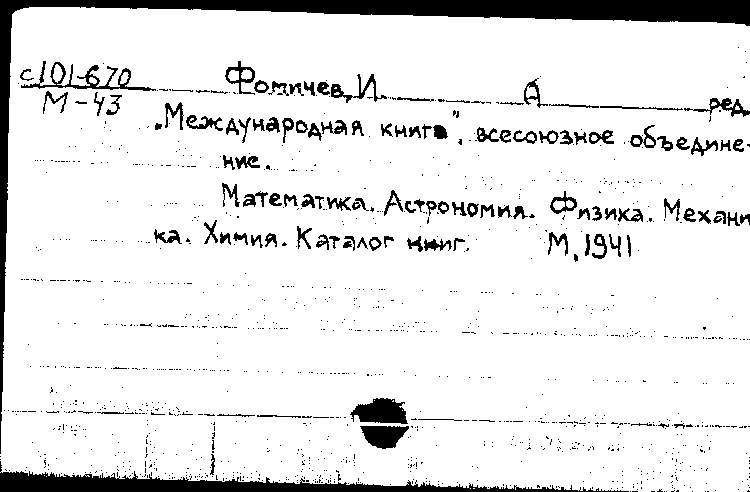 с101-670 Фомичев, И. А ред.
М-43
„Международная книга", всесоюзное объедине-
ние.
Математика. Астрономия. Физика. Механи
ка. Химия. Каталог книг. М, 1941